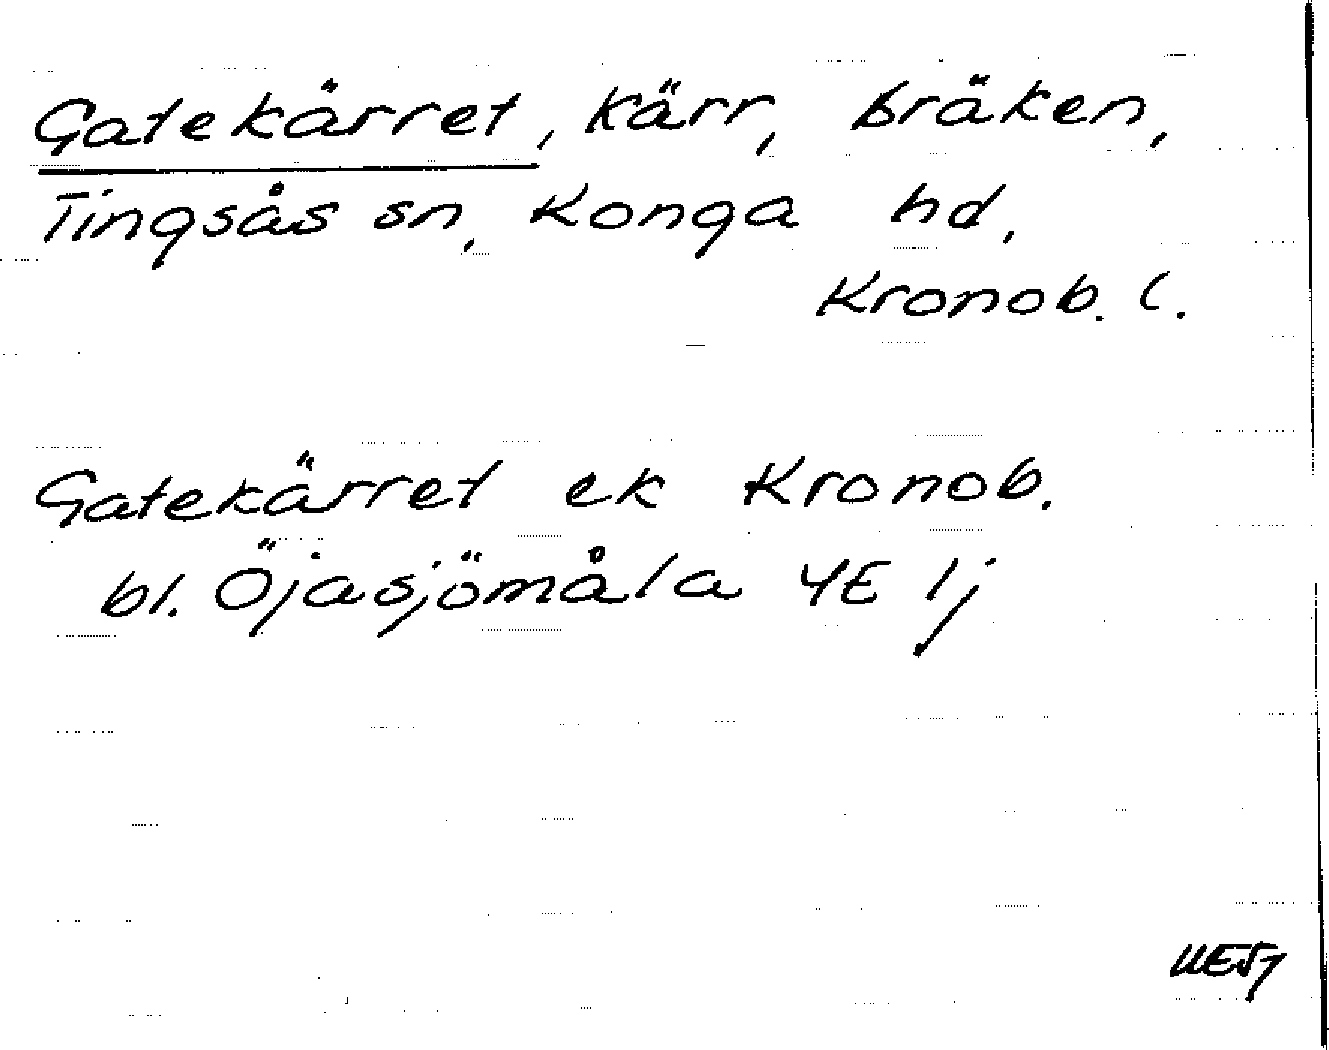 Gatekärret, kärr, Bräken,
Tingsås sn, Konga hd,
Kronob. l.
Gatekärret ek Kronob.
bl. Öjasjömåla 4E 1j